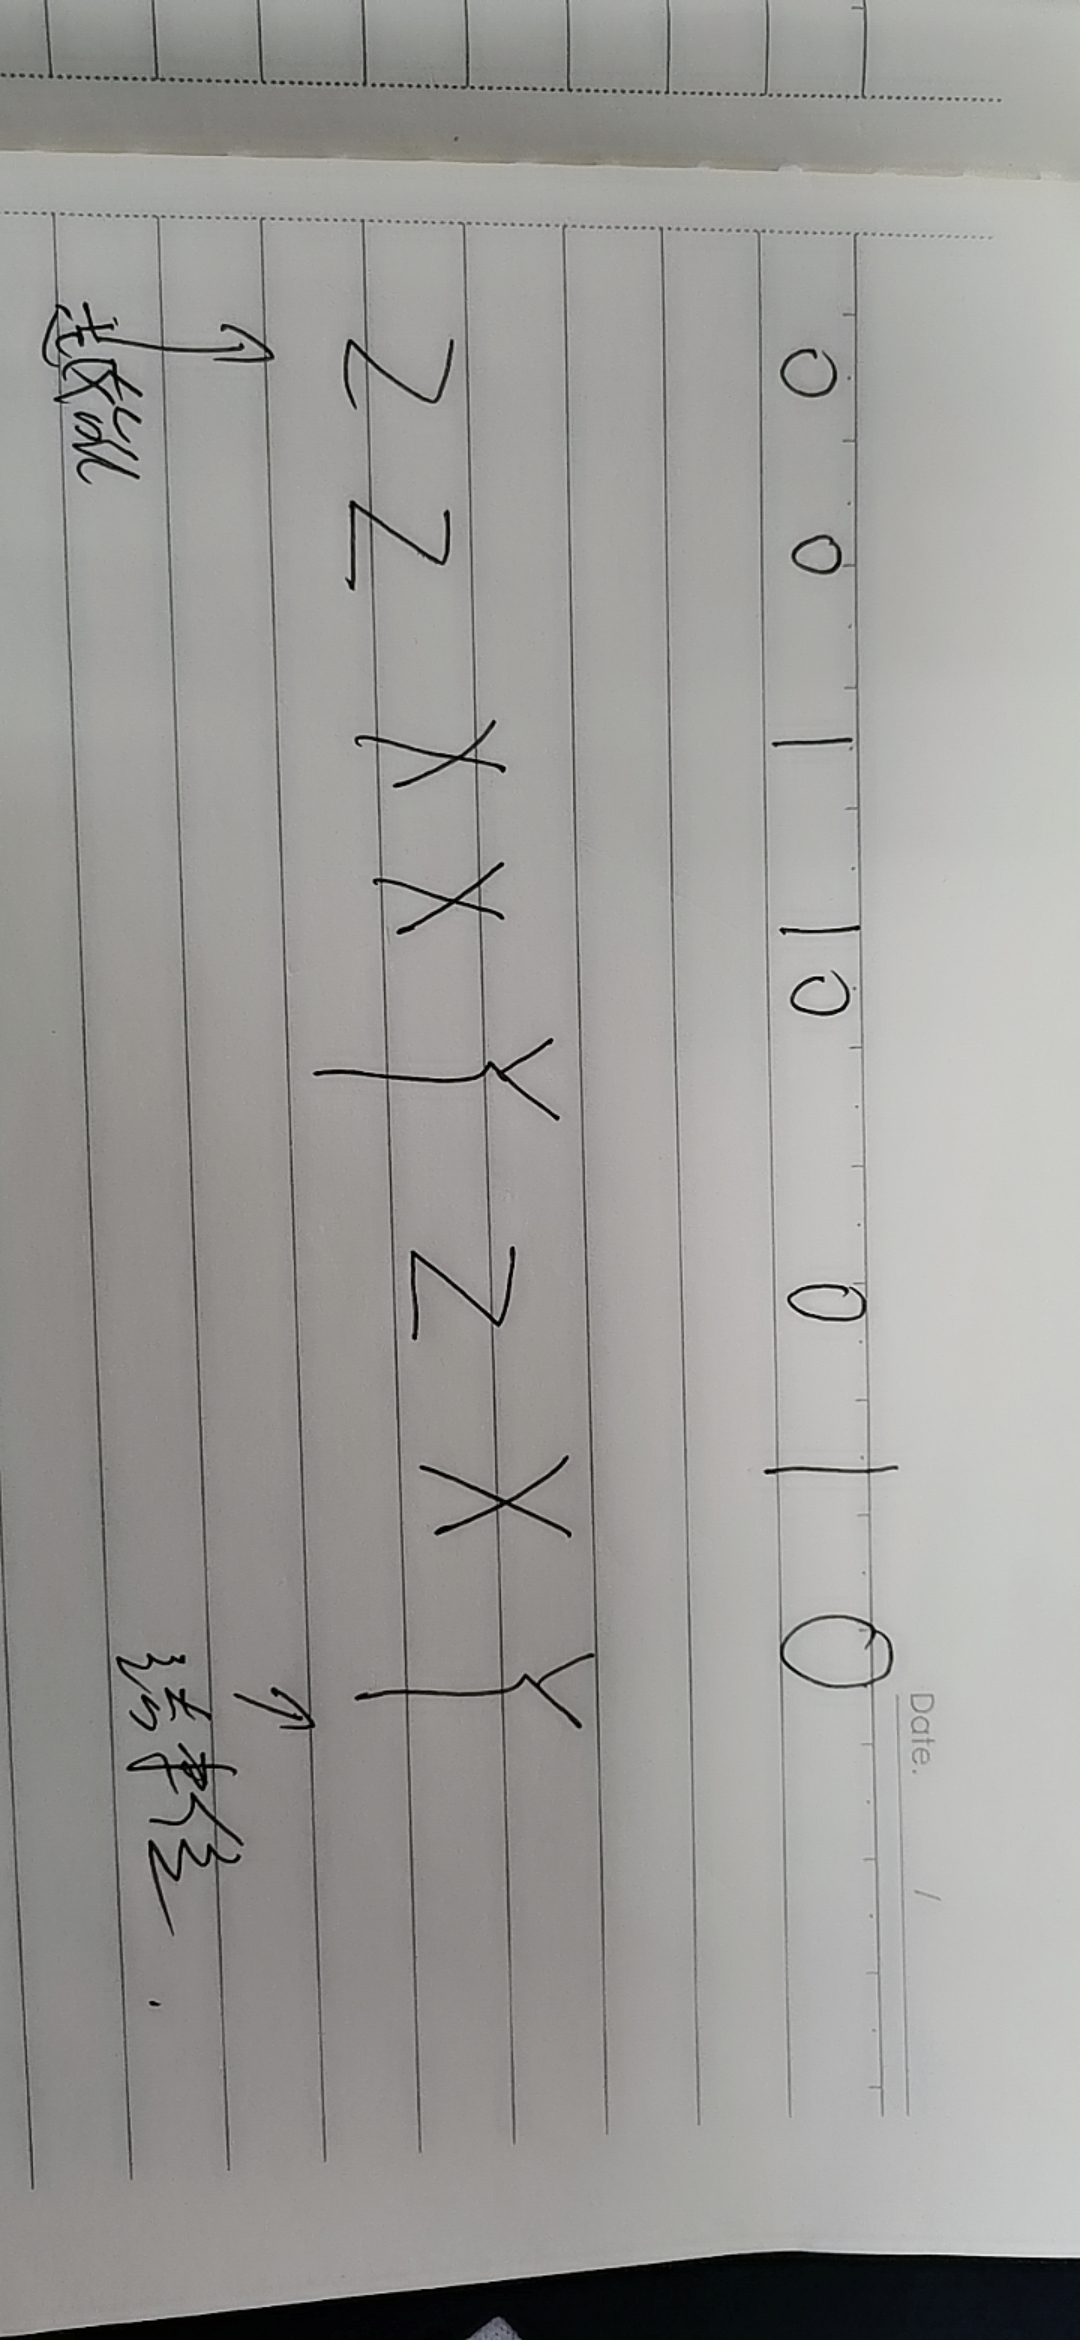 Date. /
0 0 1 1 0 0 1 0
Z Z X X Y Z X Y
↑ ↑
结束